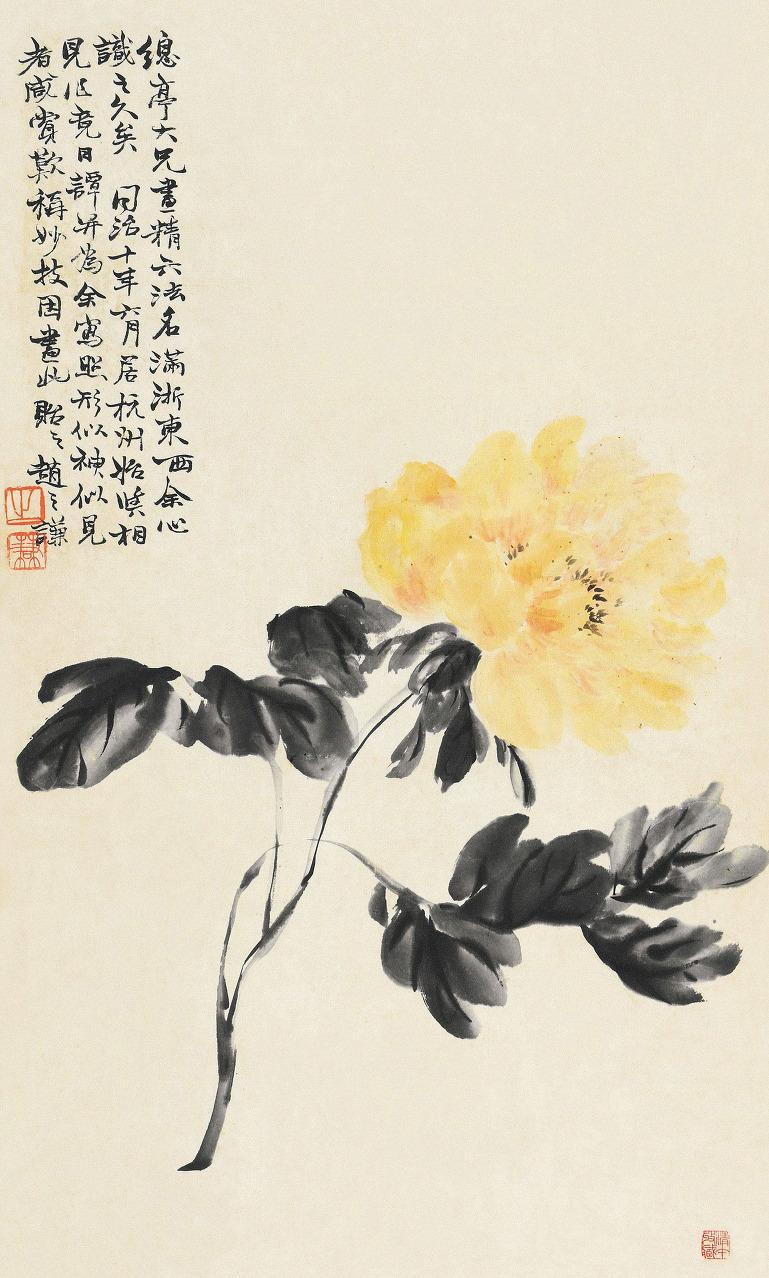 緫亭大兄畫精六法名滿浙東西余心
識之久矣 同治十年六月居杭州始獲相
見從竟日譚并為余寫照形似神似見
者咸賞歎稱妙技因畫此貽之趙之謙